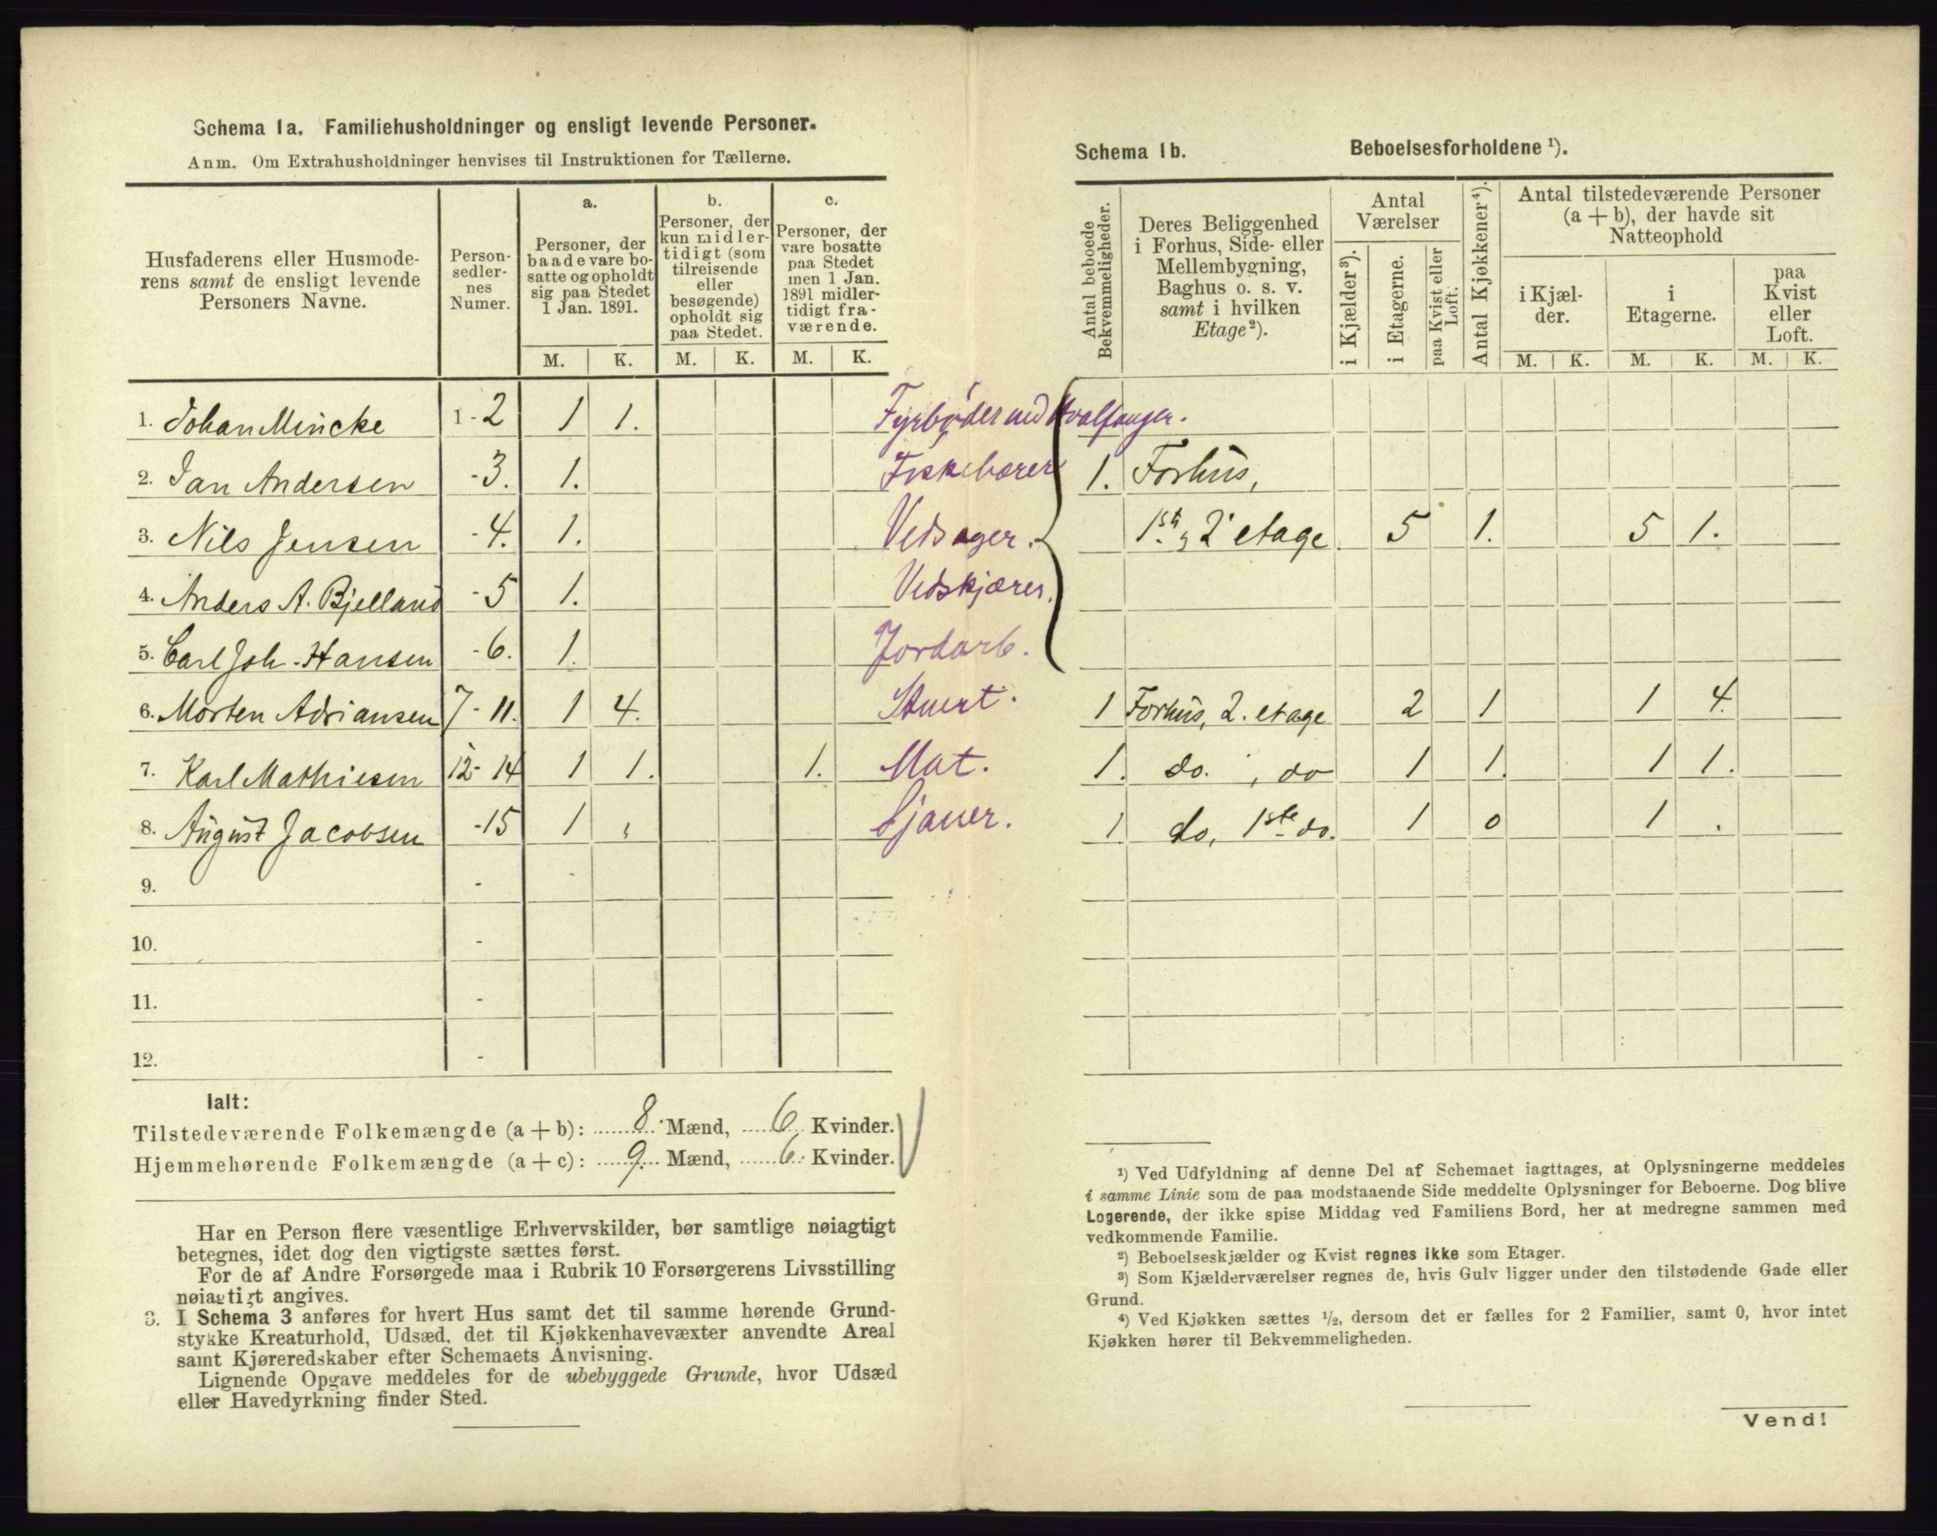 Schema 1a. Familiehusholdninger og ensligt levende Personer.
Anm. Om Extrahusholdninger henvises til Instruktionen for Tællerne.
Husfaderens eller Husmoderens samt de ensligt levende Personers Navne.
Personsedlernes Numer.
a.
Personer, der baade vare bosatte og opholdt sig paa Stedet 1 Jan. 1891.
b.
Personer, der kun midlertidigt (som tilreisende eller besøgende) opholdt sig paa Stedet.
c.
Personer, der vare bosatte paa Stedet men 1 Jan. 1891 midlertidigt fraværende.
M. K. M. K. M. K.
1. Johan Mincke 1-2 1 1. Fyrbøder med Hvalfanger.
2. Jan Andersen -3. 1. Fiskebærer
3. Nils Jensen -4. 1. Vedsager.
4. Anders A. Bjelland -5 1. Vedskjærer.
5. Carl Joh. Hansen -6. 1. Jordarb.
6. Morten Adriansen 7-11. 1 4. Stuert.
7. Karl Mathiesen 12-14 1 1. 1. Mat.
8. August Jacobsen -15 1 „ Sjauer.
9. -
10. -
11. -
12. -
Ialt:
Tilstedeværende Folkemængde (a + b): 8 Mænd, 6 Kvinder.
Hjemmehørende Folkemængde (a + c): 9 Mænd, 6 Kvinder.
Har en Person flere væsentlige Erhvervskilder, bør samtlige nøiagtigt
betegnes, idet dog den vigtigste sættes først.
For de af Andre Forsørgede maa i Rubrik 10 Forsørgerens Livsstilling
nøiagtigt angives.
3. I Schema 3 anføres for hvert Hus samt det til samme hørende Grund-
stykke Kreaturhold, Udsæd, det til Kjøkkenhavevæxter anvendte Areal
samt Kjøreredskaber efter Schemaets Anvisning.
Lignende Opgave meddeles for de ubebyggede Grunde, hvor Udsæd
eller Havedyrkning finder Sted.
Schema 1b. Beboelsesforholdene ¹).
Antal beboede Bekvemmeligheder.
Deres Beliggenhed i Forhus, Side- eller Mellembygning, Baghus o. s. v. samt i hvilken Etage²).
Antal Værelser
i Kjælder³).
i Etagerne.
paa Kvist eller Loft.
Antal Kjøkkener⁴).
Antal tilstedeværende Personer (a + b), der havde sit Natteophold
i Kjælder.
i Etagerne.
paa Kvist eller Loft.
M. K. M. K. M. K.
1. Forhus,
1ste & 2 etage. 5 1. 5 1.
1 Forhus, 2. etage 2 1 1 4.
1. do. , do 1 1. 1 1.
1 do, 1ste do. 1 0 1 .
¹) Ved Udfyldning af denne Del af Schemaet iagttages, at Oplysningerne meddeles
i samme Linie som de paa modstaaende Side meddelte Oplysninger for Beboerne. Dog blive
Logerende, der ikke spise Middag ved Familiens Bord, her at medregne sammen med
vedkommende Familie.
²) Beboelseskjælder og Kvist regnes ikke som Etager.
³) Som Kjælderværelser regnes de, hvis Gulv ligger under den tilstødende Gade eller
Grund.
⁴) Ved Kjøkken sættes ½, dersom det er fælles for 2 Familier, samt 0, hvor intet
Kjøkken hører til Bekvemmeligheden.
Vend!